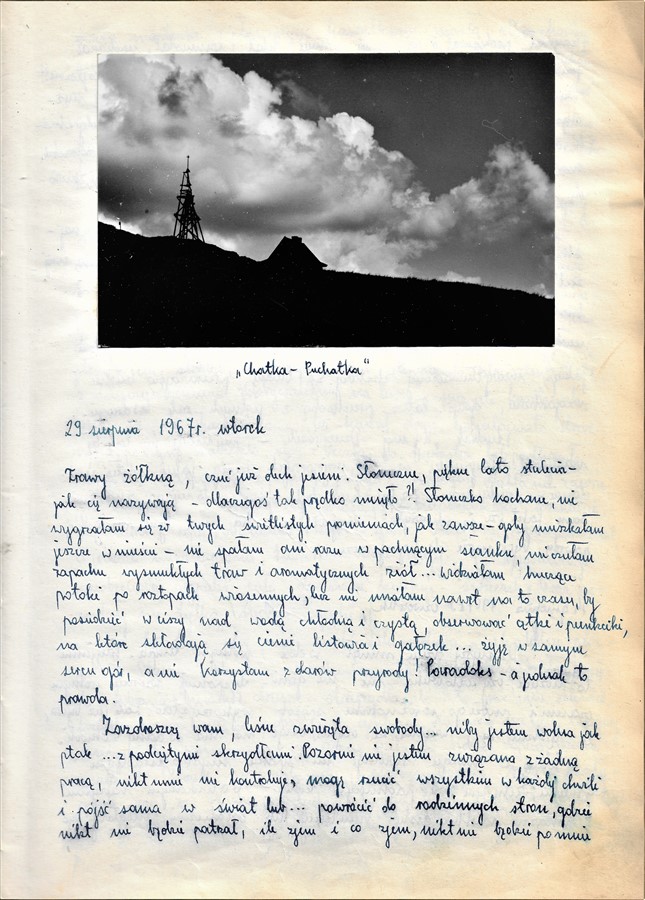 „Chatka - Puchatka"
29 sierpnia 1967r. wtorek
Trawy żółkną, czuć już dech jesieni. Słoneczne, piękne lato stulecia -
jak cię nazywają - dlaczegoś tak prędko minęło ?! Słoneczko kochane, nie
wygrzałam się w twych świetlistych promieniach, jak zawsze - gdy mieszkałam
jeszcze w mieście - nie spałam ani razu w pachnącym sianku, nie czułam
zapachu wysmukłych traw i aromatycznych ziół... widziałam huczące
potoki po roztopach wiosennych, lecz nie miałam nawet na to czasu, by
posiedzieć w ciszy nad wodą chłodną i czystą, obserwować cętki i punkciki,
na które składają się cienie listowia i gałązek ... żyję w samym
sercu gór, a nie korzystam z darów przyrody! Paradoks - a jednak to
prawda.
Zazdroszczę wam, leśne zwierzęta swobody... niby jestem wolna jak
ptak ... z podciętymi skrzydłami. Pozornie nie jestem związana z żadną
pracą, nikt mnie nie kontroluje, mogę rzucić wszystko w każdej chwili
i pójść sama w świat lub... powrócić do rodzinnych stron, gdzie
nikt nie będzie patrzał, ile zjem i co zjem, nikt nie będzie po mnie